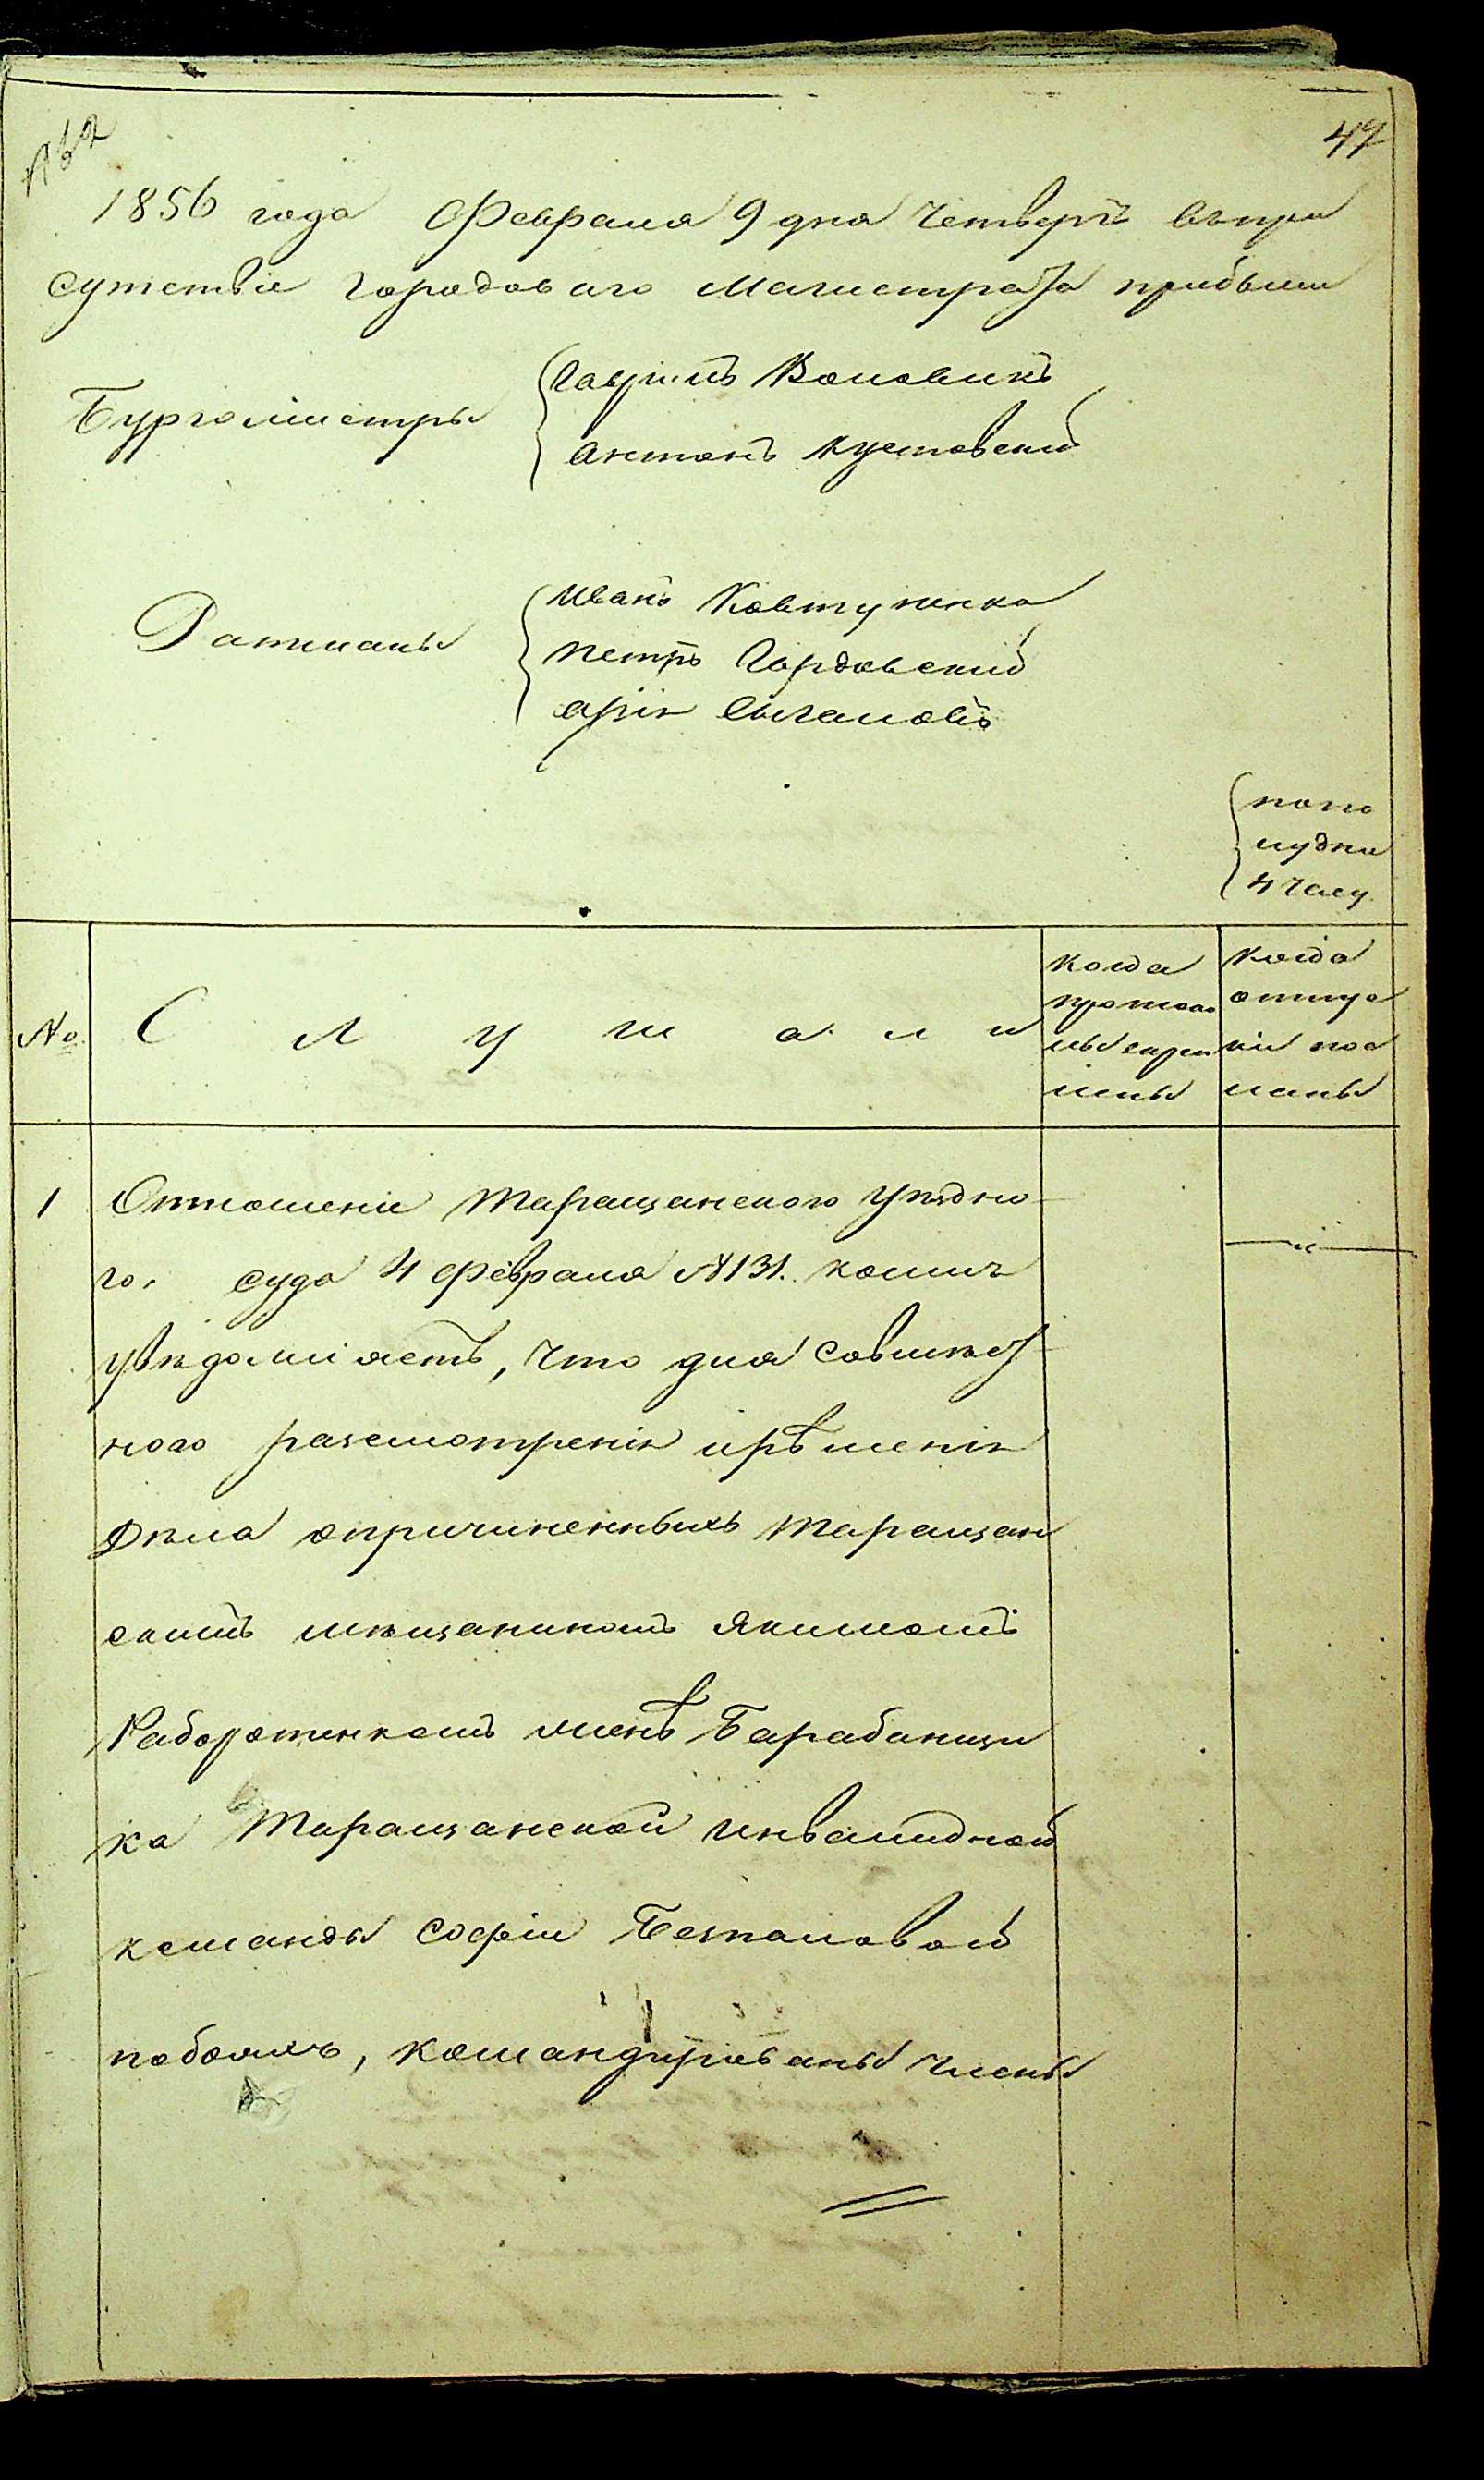 47
1856 года Февраля 9 дня Четвергъ въ при
сутствіе Городоваго Магистрата прибыли
Бургомистры
Гаврилъ Воловикъ
Антонъ Кустовский
Ратманы
Иванъ Ковтуненко
Петръ Гордовский
попо
лудни
4 часу
№
Слушали
когда
протоко
лы скреп
лены
когда
отпус
ки пос
ланы
1
Отношеніе Таращанского Уѣздно
го суда 4 февраля №131. коимъ
увѣдомляетъ, что для совмѣст
ного разсмотренія и рѣшенія
Дѣла о причиненныхъ Таращан
скимъ мѣщаниномъ Якимомъ
женѣ Барабанщи
ка Таращанской Инвалидной
команды Софіи Безпаловой
побояхъ, командированы члены